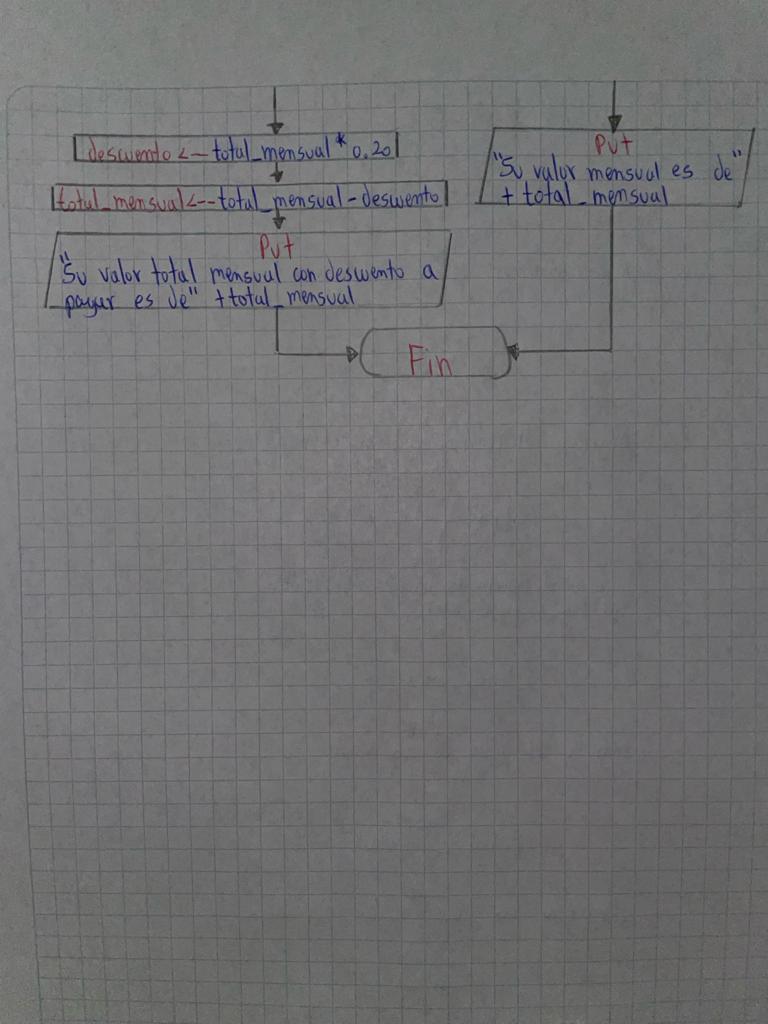 descuento <-- total_mensual * 0.20
total_mensual <-- total_mensual - descuento
Put
"Su valor total mensual con descuento a
pagar es de" + total_mensual
Put
"Su valor mensual es de"
+ total_mensual
Fin